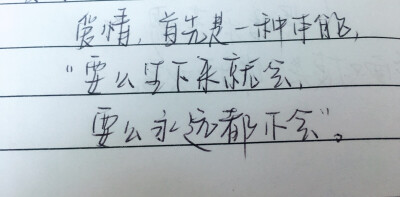 爱情，首先是一种本能，
“要么生下来就会，
要么永远都不会”。